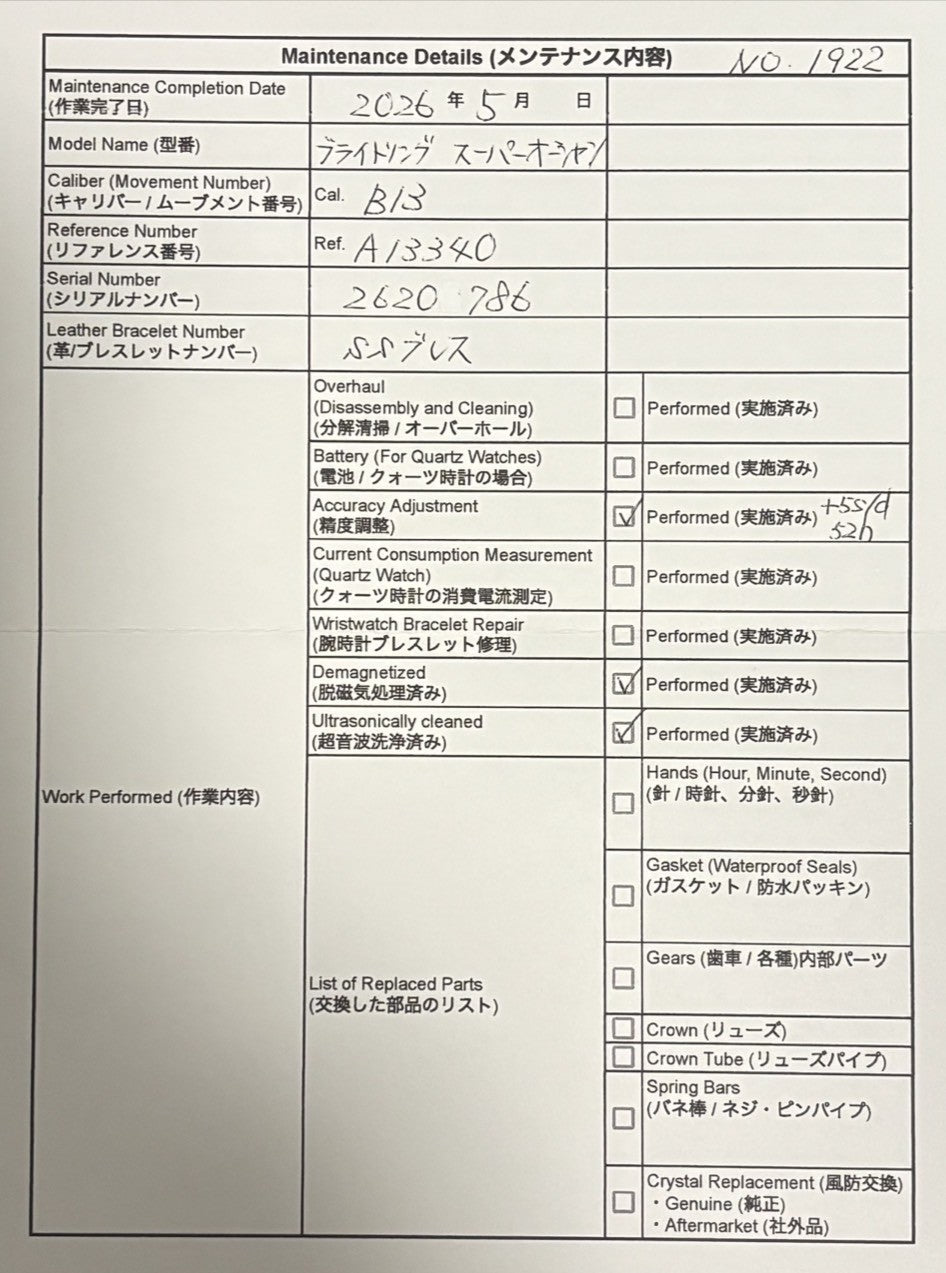 Maintenance Details (メンテナンス内容) NO. 1922
Maintenance Completion Date
(作業完了日)
2026 年 5 月 日
Model Name (型番)
ブライトリング スーパーオーシャン
Caliber (Movement Number)
(キャリバー / ムーブメント番号)
Cal. B13
Reference Number
(リファレンス番号)
Ref. A13340
Serial Number
(シリアルナンバー)
2620786
Leather Bracelet Number
(革/ブレスレットナンバー)
SSブレス
Work Performed (作業内容)
Overhaul
(Disassembly and Cleaning)
(分解清掃 / オーバーホール)
Performed (実施済み)
Battery (For Quartz Watches)
(電池 / クォーツ時計の場合)
Performed (実施済み)
Accuracy Adjustment
(精度調整)
Performed (実施済み) +5s/d
52h
Current Consumption Measurement
(Quartz Watch)
(クォーツ時計の消費電流測定)
Performed (実施済み)
Wristwatch Bracelet Repair
(腕時計ブレスレット修理)
Performed (実施済み)
Demagnetized
(脱磁気処理済み)
Performed (実施済み)
Ultrasonically cleaned
(超音波洗浄済み)
Performed (実施済み)
List of Replaced Parts
(交換した部品のリスト)
Hands (Hour, Minute, Second)
(針 / 時針、分針、秒針)
Gasket (Waterproof Seals)
(ガスケット / 防水パッキン)
Gears (歯車 / 各種)内部パーツ
Crown (リューズ)
Crown Tube (リューズパイプ)
Spring Bars
(バネ棒 / ネジ・ピンパイプ)
Crystal Replacement (風防交換)
・Genuine (純正)
・Aftermarket (社外品)